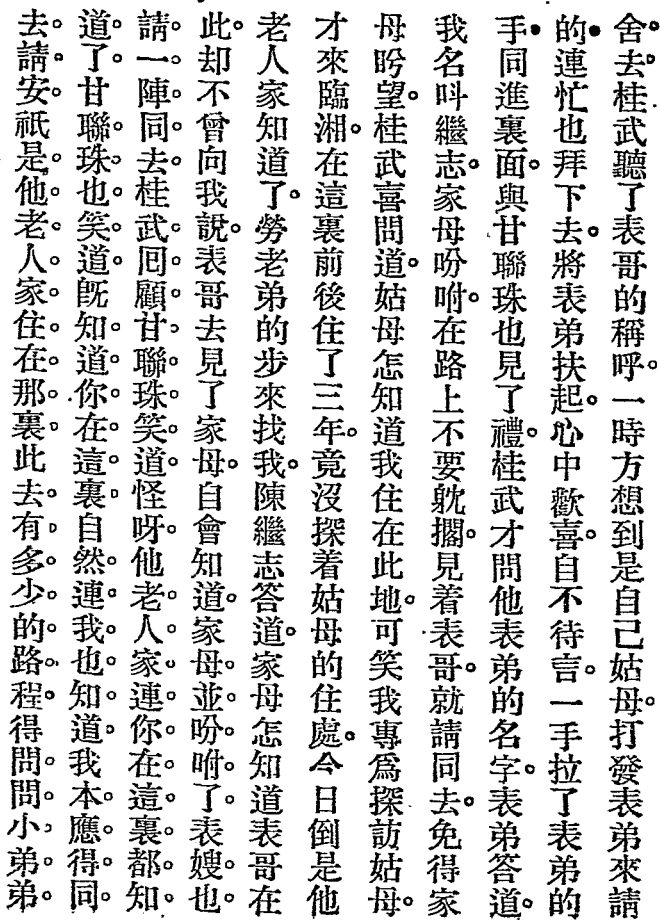 舍。去桂武聽了表哥的稱呼。一時方想到是自己姑母。打發表弟來請
的。連忙也拜下去。將表弟扶起。心中歡喜。自不待言。一手拉了表弟的
手。同進裏面。與甘聯珠也見了禮。桂武才問他表弟的名字。表弟答道。
我名呌繼志。家母吩咐。在路上不要躭擱。見着表哥。就請同去。免得家
母盻望。桂武喜問道。姑母怎知道我住在此地。可笑我專爲探訪姑母。
才來臨湘。在這裏前後住了三年。竟沒探着姑母的住處。今日倒是他
老人家知道了。勞老弟的步來找我。陳繼志答道。家母怎知道表哥在
此。却不曾向我說。表哥去見了家母。自會知道。家母並吩咐了。表嫂也。
請一陣同去。桂武囘顧甘聯珠笑道。怪呀。他老人家連你在這裏都知。
道了。甘聯珠也笑道。旣知道你在這裏。自然連我也知道。我本應得同。
去請安。祇是他老人家住在那裏。此去有多少的路程。得問問小弟弟。